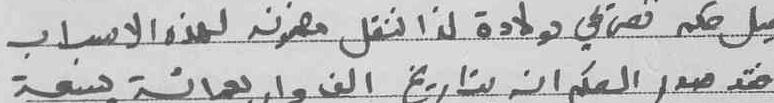 حكم في ولادة لذا ننقل مضمونه لهذه الاسباب
فقد صدر الحكم انه بتاريخ الف واربعمائة وسبعة